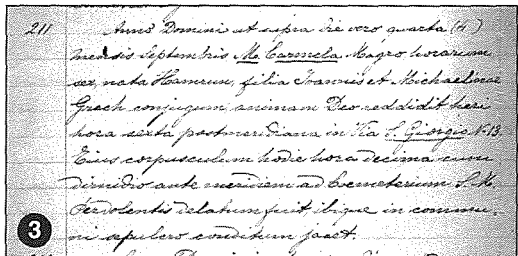 211 Anno Domini ut supra die vero quarta (4)
mensis Septembris M. Carmela Magro, horarum
sex, nata Hamrun, filia Joannis et Michaelinae
Grech conjugum, animam Deo reddidit heri
hora sexta postmeridiana in Via S. Giorgio N. 13.
Eius corpusculum hodie hora decima cum
dimidio ante meridiem ad Coemeterium S. M.
Perdolentis delatum fuit, ibique in commu-
ni sepulcro conditum jacet.
3